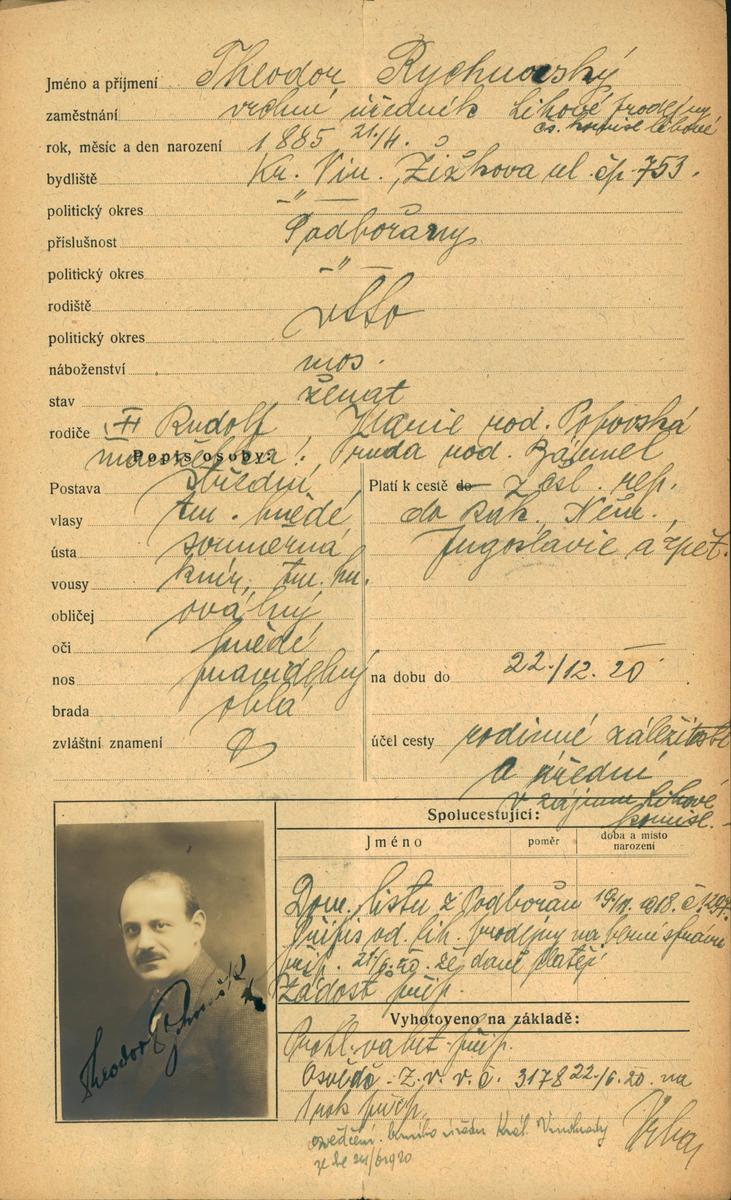 Jméno a příjmení Theodor Rychnovský
zaměstnání vrchní úředník Lihové prodejny
čs. komise lihové
rok, měsíc a den narození 1885 21/4.
bydliště Kr. Vin. Žižkova ul. čp. 753.
politický okres -"-
příslušnost Podbořany
politický okres -"-
rodiště
politický okres
náboženství mos.
stav ženat
rodiče Rudolf Marie rod. Popovská
manželka: Truda rod. Bäumel
Popis osoby:
Postava střední
vlasy tm. hnědé
ústa souměrná
vousy knír, tm. hn.
obličej oválný
oči hnědé
nos pravidelný
brada oblá
zvláštní znamení
Platí k cestě do z čsl. rep.
do Rak., Něm.,
Jugoslavie a zpět.
na dobu do 22./12. 20
účel cesty rodinné záležitosti
a úřední
v zájmu Lihové
komise.
Spolucestující:
Jméno poměr doba a místo narození
Dom. listu z Podbořan 1918. č.
Přípis od. lih. prodejny na berní správu
přip. 21/6. 20. že daně platí
Žádost přip.
Vyhotoveno na základě:
Prohl. přip.
Osvědč. Z. v. v. č. 3178 22/6. 20. na
1 rok přip.
osvědčení berního úřadu Král. Vinohrady
ze dne 24/6 1920
Theodor Rychnovský